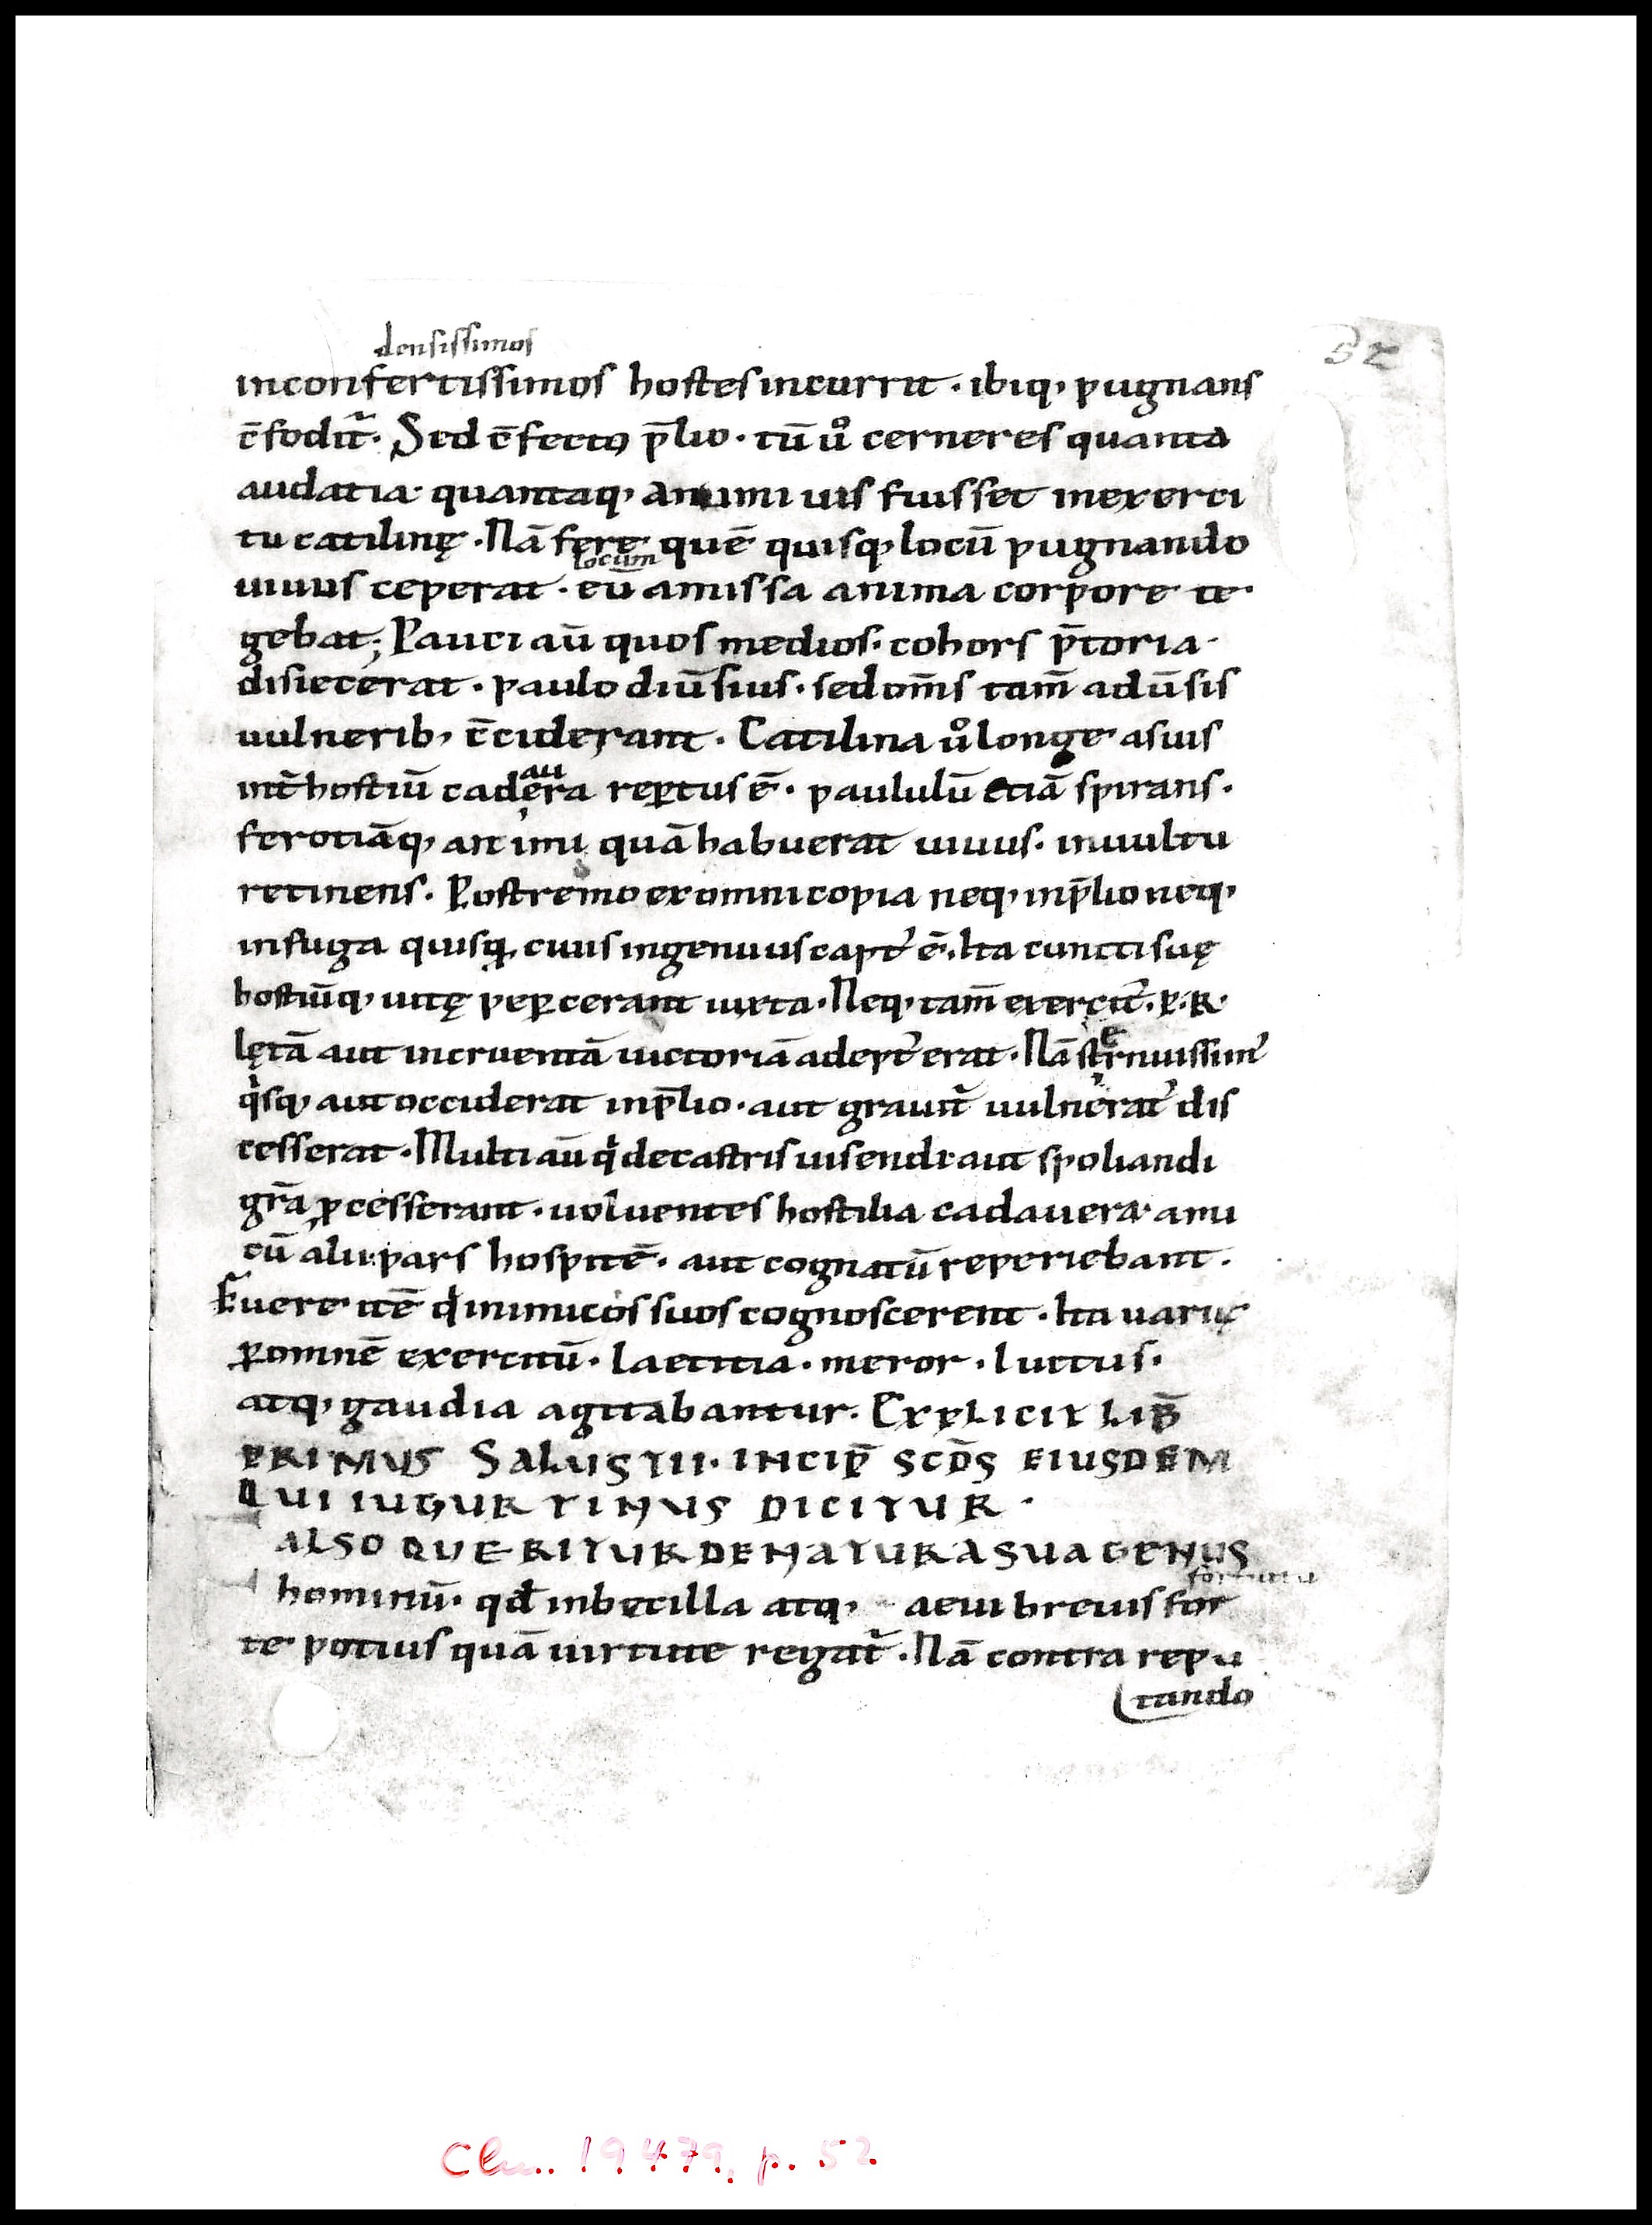 52
densissimos
inconfertissimos hostes incurrit · ibiq, pugnans
c̄fodit᷑. Sed c̄fecto p̄lio · tū ůo cerneres quanta
audatia quantaq, animi uis fuisset inexerci
tu catilinę · Nā fere quē quisq, locū pugnando
locum
uiuus ceperat · eū amissa anima corpore te
gebat; Pauci aū quos medios · cohors p̄toria
disiecerat · paulo diūsius · sed om̄s tam̄ adūsis
uulnerib, c̄ciderant · Catilina uͦ longe asuis
au
int̄ hostiū cadera rep̱tus ē · paululū etiā spirans ·
ferotiāq, animi quā habuerat uiuus · inuultu
retinens · Postremo ex omni copia neq, inp̄lio neq,
infuga quisq, ciuis ingenuus capt᾽ ē · Ita cuncti suę
hostiūq, uitę pep̱cerant iuxta · Neq, tam̄ exercit᾽ · P · R ·
lętā aut incruentā uictoriā adept᾽ erat · Nā strenuissim᾽
qͥsq, aut occiderat inp̄lio · aut grauit᷑ uulnerat᾽ dis
cesserat · Multi aū qͥ decastris uisendi aut spoliandi
gr̄a ꝓcesserant · uoluentes hostilia cadauera ami
cū alii pars hospitē · aut cognatū reperiebant ·
Fuere itē qͥ inimicos suos cognoscerent · Ita uarię
ꝑomnē exercitū · laetitia · meror · luctus ·
atq, gaudia agitabantur · EXPLICIT LIB̄
PRIMUS SALUSTII · INCIP̄ SCD̄S EIUSDEM
QUI IUGURTINUS DICITUR ·
ALSO QUERITUR DE NATURA SUA GENUS
fortuitu
hominū · qd̄ inbecilla atq, aeui breuis for
te potius quā uirtute regat᷑ · Nā contra repu
tando
Clm. 19479, p. 52